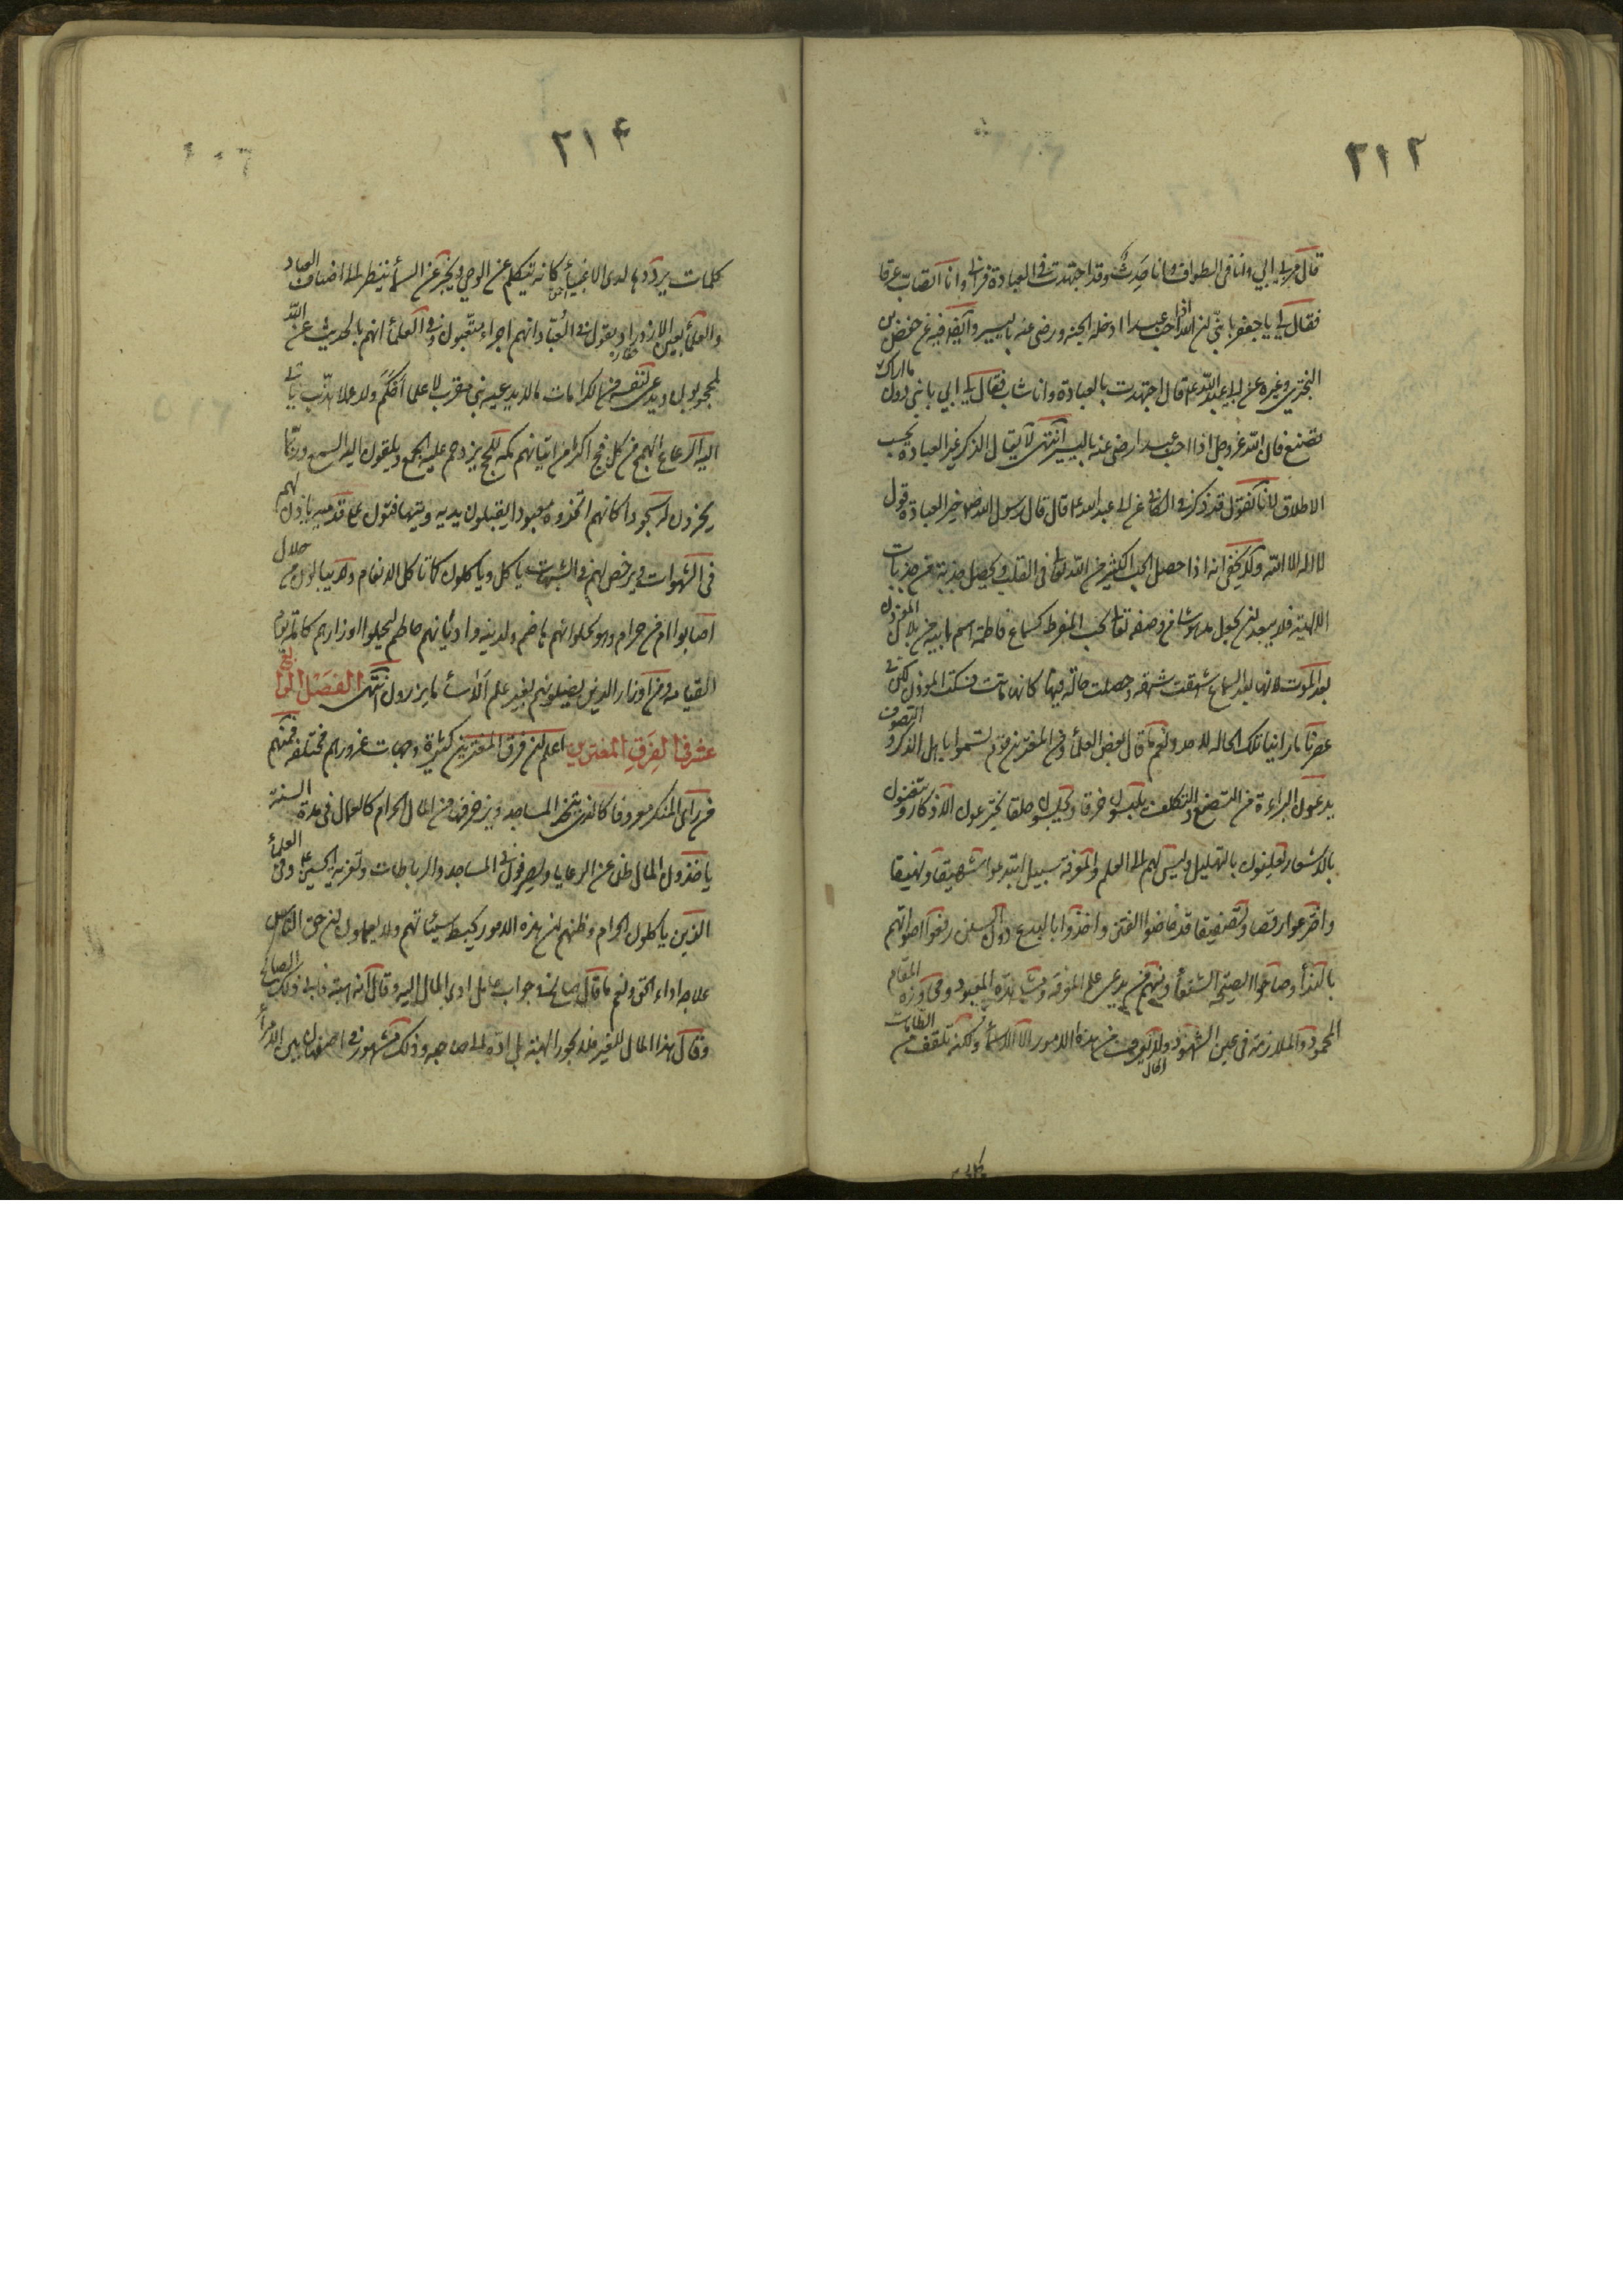 ٢١٣
قال مر بي ابي وانا في الطواف وانا حدث وقد اجتهدت في العبادة فرآني وانا اتصاب عرقا
فقال لي يا جعفر يا بني ان الله اذا احب عبدا ادخله الجنه ورضي عنه باليسير وايضا فيه عن حفص بن
البختري وغيره عن ابي عبد الله ع قال اجتهدت بالعبادة وانا شاب فقال لي ابي يا بني دون ما اراك
تصنع فان الله عز وجل اذا احب عبدا رضي عنه باليسير انتهى لا يقال الذكر غير العبادة بحسب
الاطلاق لانا نقول قد ذكر في الكافي عن ابي عبد الله ع قال قال رسول الله ص خير العبادة قول
لا اله الا الله ولا يخفى انه اذا حصل الحب الكثير من الله تعالى في القلب ويحصل جذبة من جذبات
الالهية فلا يبعد ان يجعل مدهوشا من وصفه تعالى بحب المفرط كسماع فاطمة اسم ابيه من بلال المؤذن
بعد الموت لانها بعد السماع شهقت شهقة وحصلت حالة فيها كانها ماتت فسكت المؤذن لكن في
عصرنا ما راينا تلك الحاله لاحد ونعم ما قال بعض العلماء ومن المغترين قوم تسموا باهل الذكر والتصوف
يدعون البراءة من التصنع والتكلف يلبسون خرقا ويجلسون حلقا يخترعون الاذكار ويتغنون
بالاشعار يعلنون بالتهليل وليس لهم الى العلم والمعرفة سبيل ابتدعوا شهيقا ونهيقا
واخترعوا رقصا وتصفيقا قد خاضوا الفتن واخذوا بالبدع دون السنن رفعوا اصواتهم
بالنداء وصاحوا الصيحة الشنعاء ومنهم من يدعي علم المعرفه ومشاهدة المعبود ومجاورة المقام
المحمود والملازمة في عين الشهود ولا يعرف من هذه الامور الا الاسماء ولكنه تلقف من الطامات
٢١٤
كلمات يرددها لدى الاغبياء كانه يتكلم عن الوحي ويخبر عن السماء ينظر الى اصناف العباد
والعلماء بعين الازدراء يقول في العباد انهم اجراء متعبون وفي العلماء انهم بالحديث عن الله
لمحجوبون ويدعي لنفسه من الكرامات ما لا يدعيه نبي مقرب لا علما احكم ولا عملا هذب ياتي
اليه الرعاع الهمج من كل فج اكثر من اتيانهم مكه للحج يزدحم عليه الجمع ويلقون اليه السمع وربما
يخرون له سجودا كانهم اتخذوه معبودا يقبلون يديه ويتهافتون على قدميه ياذن لهم
في الشهوات ويرخص لهم في الشبهات ياكل وياكلون كما تاكل الانعام ولا يبالون من حلال
اصابوا ام من حرام وهو لحلوائهم هاضم ولدينه واديانهم حاطم ليحملوا اوزارهم كاملة يوم
القيامه ومن اوزار الذين يضلونهم بغير علم الا ساء ما يزرون انتهى الفصل الحا
عشر في الفرق المغترين اعلم ان فرق المغترين كثيرة وجهات غرورهم مختلفه فمنهم
من راى المنكر معروفا كالذي يتخذ المساجد ويزخرفها من المال الحرام كالعمال في مدة السنة
ياخذون المال ظلما عن الرعايا ويصرفون في المساجد والرباطات وتعزية الحسين ع وفي العلماء
الذين ياكلون الحرام وظنهم ان هذه الامور يحبط سيئاتهم ولا يعلمون ان حق الناس
علاجه اداء الحق ونعم ما قال صالح في جواب عامل ادى المال اليه وقال انه هبة فابى ذلك الصالح
وقال هذا المال للغير فلا يجوز الهبة بل اده الى صاحبه وذلك مشهور في اصفهان بين الامراء